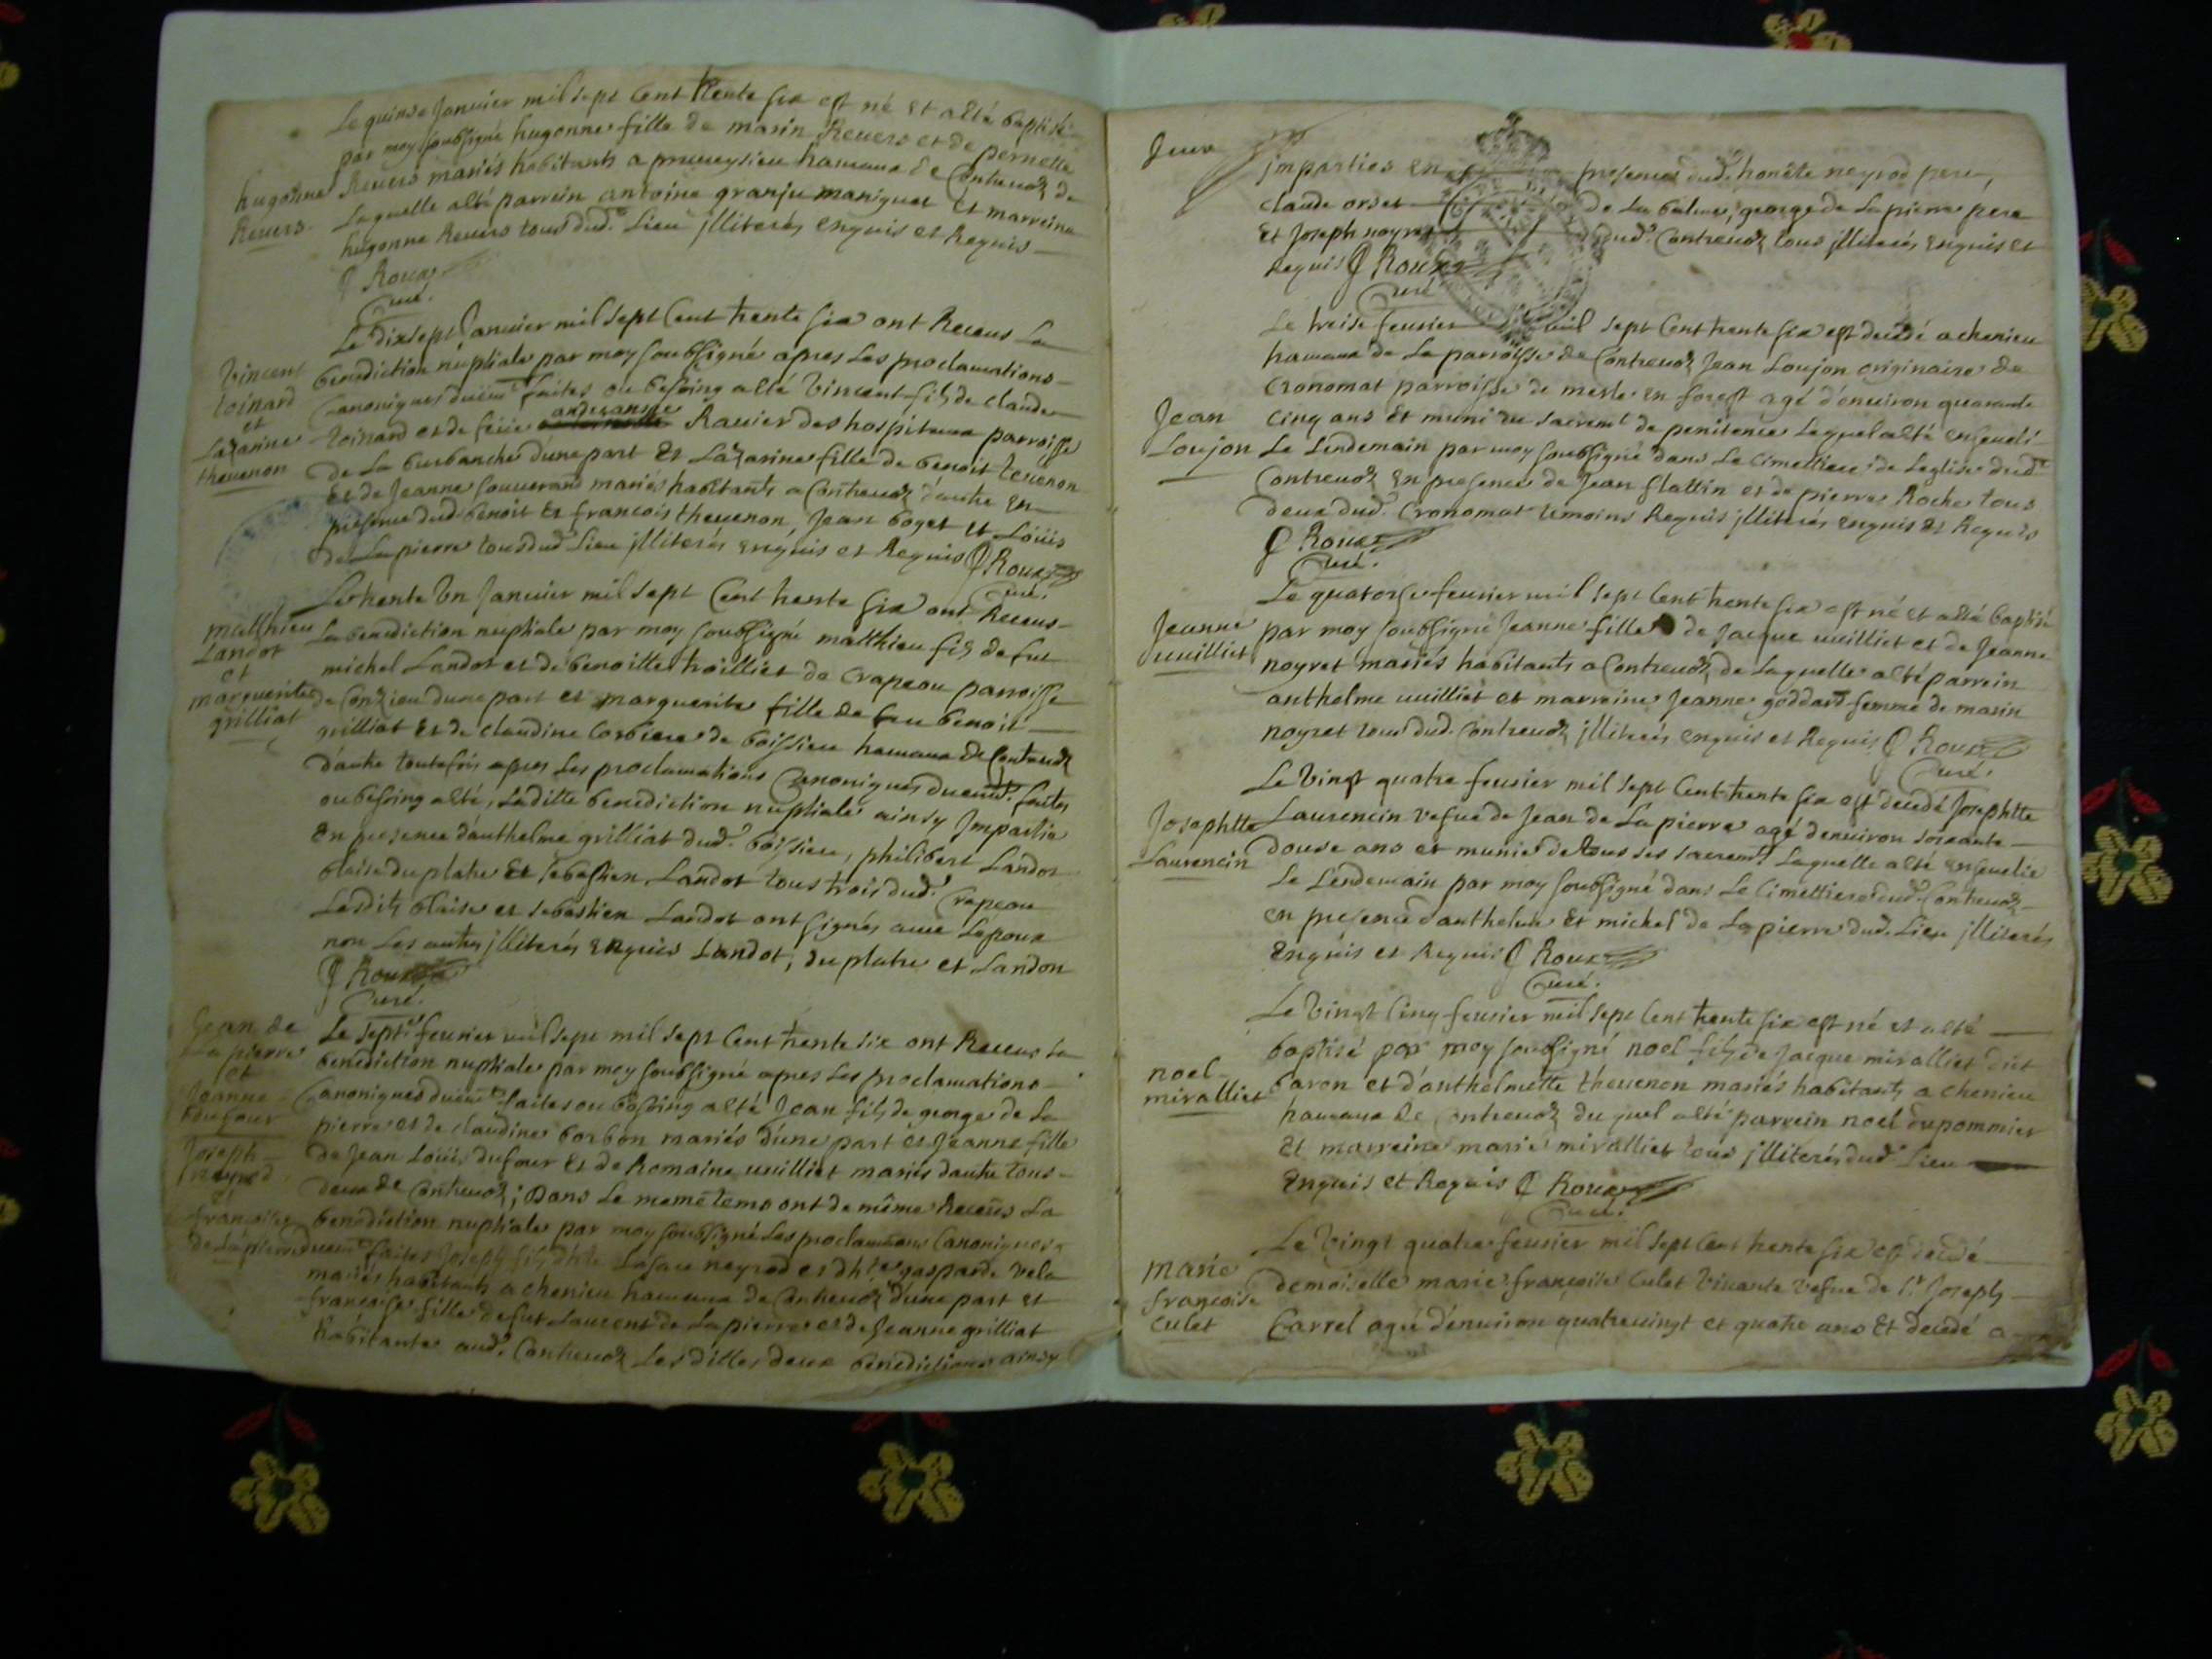 Le quinse Janvier mil sept Cent trente six est né et a été baptisée
par moy soubsigné hugonne fille de marin Revers et de pernette
hugonne Revers mariés habitants a hamaux de Contrevoz de
Revers Laquelle a été parrein antoine granju maniguet et marreine
hugonne Revers tous dud. Lieu jlliterés enquis et Requis
Roux
Curé.
Le dixsept Janvier mil sept Cent trente six ont Receus La
vincent benediction nuptiale par moy soubsigné apres Les proclamations
toinard Canoniques duëmt faites ou besoing a été vincent fils de claude
et toinard et de feüe Ravier des hospitaux parroisse
Lazarine
thevenon de La burbanche d'une part Et Lazarine fille de benoit tevenon
Et de Jeanne souverand mariés habitants a Contrevoz d'autre en
presence dud. benoit Et francois thevenon, Jean boget et Loüis
de Lapierre tous dud. Lieu jlliterés enquis et Requis Roux
Curé.
Le trente un Janvier mil sept Cent trente six ont Receus
matthieu La benediction nuptiale par moy soubsigné matthieu fils de fut
Landot michel Landot et de benoitte troilliet de Crapeou parroisse
et
marguerite de Conzieu d'une part et marguerite fille de feu benoit
grilliat grilliat Et de claudine Corbiere de boissieu hamaux de Contrevoz
d'autre toutefois apres Les proclamations Canoniques duëmt. faites
ou besoing a été, Laditte benediction nuptiale ainsy Impartie
En presence d'anthelme grilliat dud. boissieu, philibert Landot
blaise duplatre Et sebastien Landot tous trois dud. Crapeou
Lesdits blaise et sebastien Landot ont signés avec Lepoux
non Les autres jlliterés enquis Landot, duplatre et Landon
Roux
Curé.
Jean de Le sept feuvrier mil sept mil sept Cent trente six ont Receus La
La pierre benediction nuptiale par moy soubsigné apres Les proclamations
et
Jeanne Canoniques duëmt faites ou besoing a été Jean fils de george de La
pierre et de claudine borbon mariés d'une part et Jeanne fille
Joseph de Jean Loüis dufour Et de Romaine vuilliet mariés d'autre tous
neyrod deux de Contrevoz; Dans Le meme tems ont de même Receus La
et
francoise benediction nuptiale par moy soubsigné Les proclamations Canoniques
de Lapierre duëmt faites Joseph fils neyrod et gasparde
mariés habitants a chenieu hamaux de Contrevoz d'une part et
francoise fille de fut Laurent de Lapierre et de Jeanne grilliat
habitante aud. Contrevoz Lesdittes deux benedictions ainsy
Imparties En presence dud. honéte neyrod pere,
claude orset de La balme, george de Lapierre pere
Et Joseph noyret dud. Contrevoz tous jlliterés enquis et
Requis Roux
Curé
Le treise feuvrier mil sept Cent trente six est decedé a chenieu
hamaux de La parroisse de Contrevoz Jean Loujon originaire de
Cronomat parroisse de merle en forest agé d'environ quarante
Jean Cinq ans Et muni du sacremt de penitence Lequel a été enseveli
Loujon Le Lendemain par moy soubsigné dans Le Cimettiere de Leglise dud.
Contrevoz En presence de Jean flattin et de pierre Roche tous
deux dud. Cronomat temoins Requis jlliterés enquis Et Requis
Roux
Curé.
Le quatorse feuvrier mil sept Cent trente six est né et a été baptisé
Jeanne par moy soubsigné Jeanne fille de Jacque vuilliet et de Jeanne
vuilliet noyret mariés habitants a Contrevoz de Laquelle a été parrein
anthelme vuilliet et marreine Jeanne goddard femme de marin
noyret tous dud. Contrevoz jlliterés enquis et Requis Roux
Curé.
Le vingt quatre feuvrier mil sept Cent trente six est decedé Josephtte
Josephtte Laurencin vefve de Jean de Lapierre agé denviron soixante
Laurencin douse ans et munie de tous ses sacremts Laquelle a été ensevelie
Le Lendemain par moy soubsigné dans Le Cimettiere dud. Contrevoz
en presence d'anthelme Et michel de Lapierre dud. Lieu jlliterés
Enquis et Requis Roux
Curé.
Le vingt Cinq feuvrier mil sept Cent trente six est né et a été
baptisé par moy soubsigné noel fils de Jacque miralliet dict
noel baron et d'anthelmette thevenon mariés habitants a chenieu
miralliet hamaux de Contrevoz du quel a été parrein noel dupommier
Et marreine marie miralliet tous jlliterés dud. Lieu
Enquis et Requis Roux
Curé.
Le vingt quatre feuvrier mil sept Cent trente six est decedé
marie demoiselle marie françoise Culet vefve de Sr. Joseph
françoise
Culet Carrel agé d'environ quatrevingt et quatre ans Et decedé a